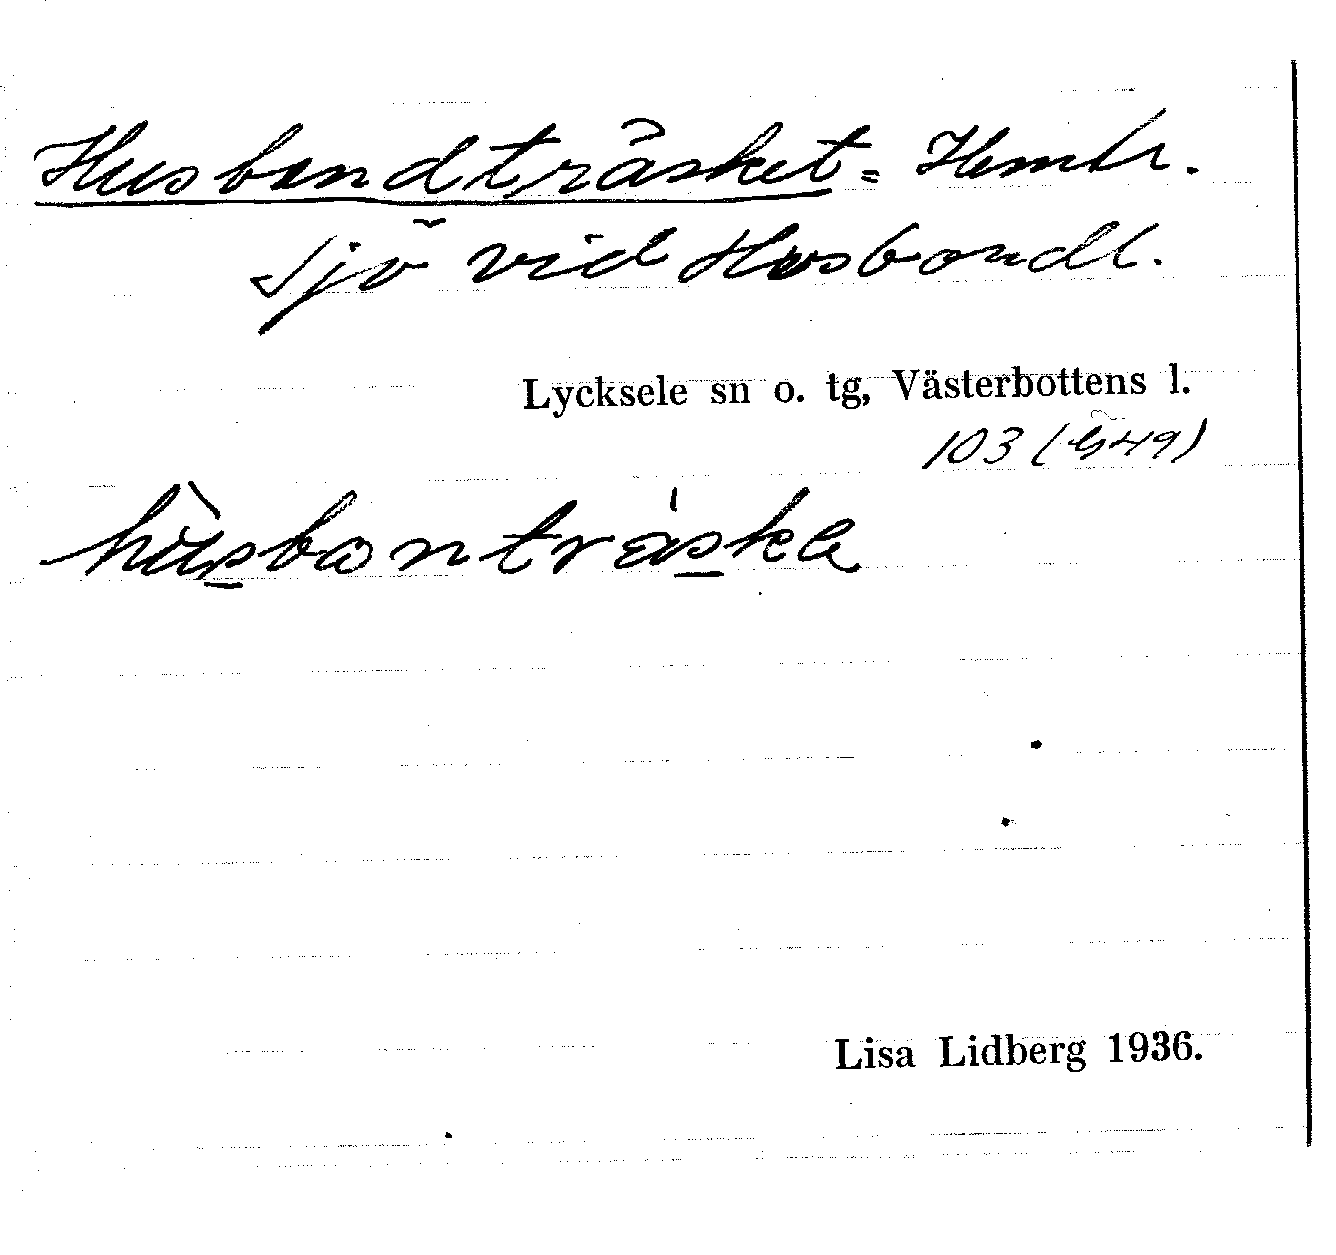 Husbondträsket = Hemtr.
Sjö vid Husbondl.
Lycksele sn o. tg, Västerbottens l.
103 (649)
hùsbontráska
Lisa Lidberg 1936.